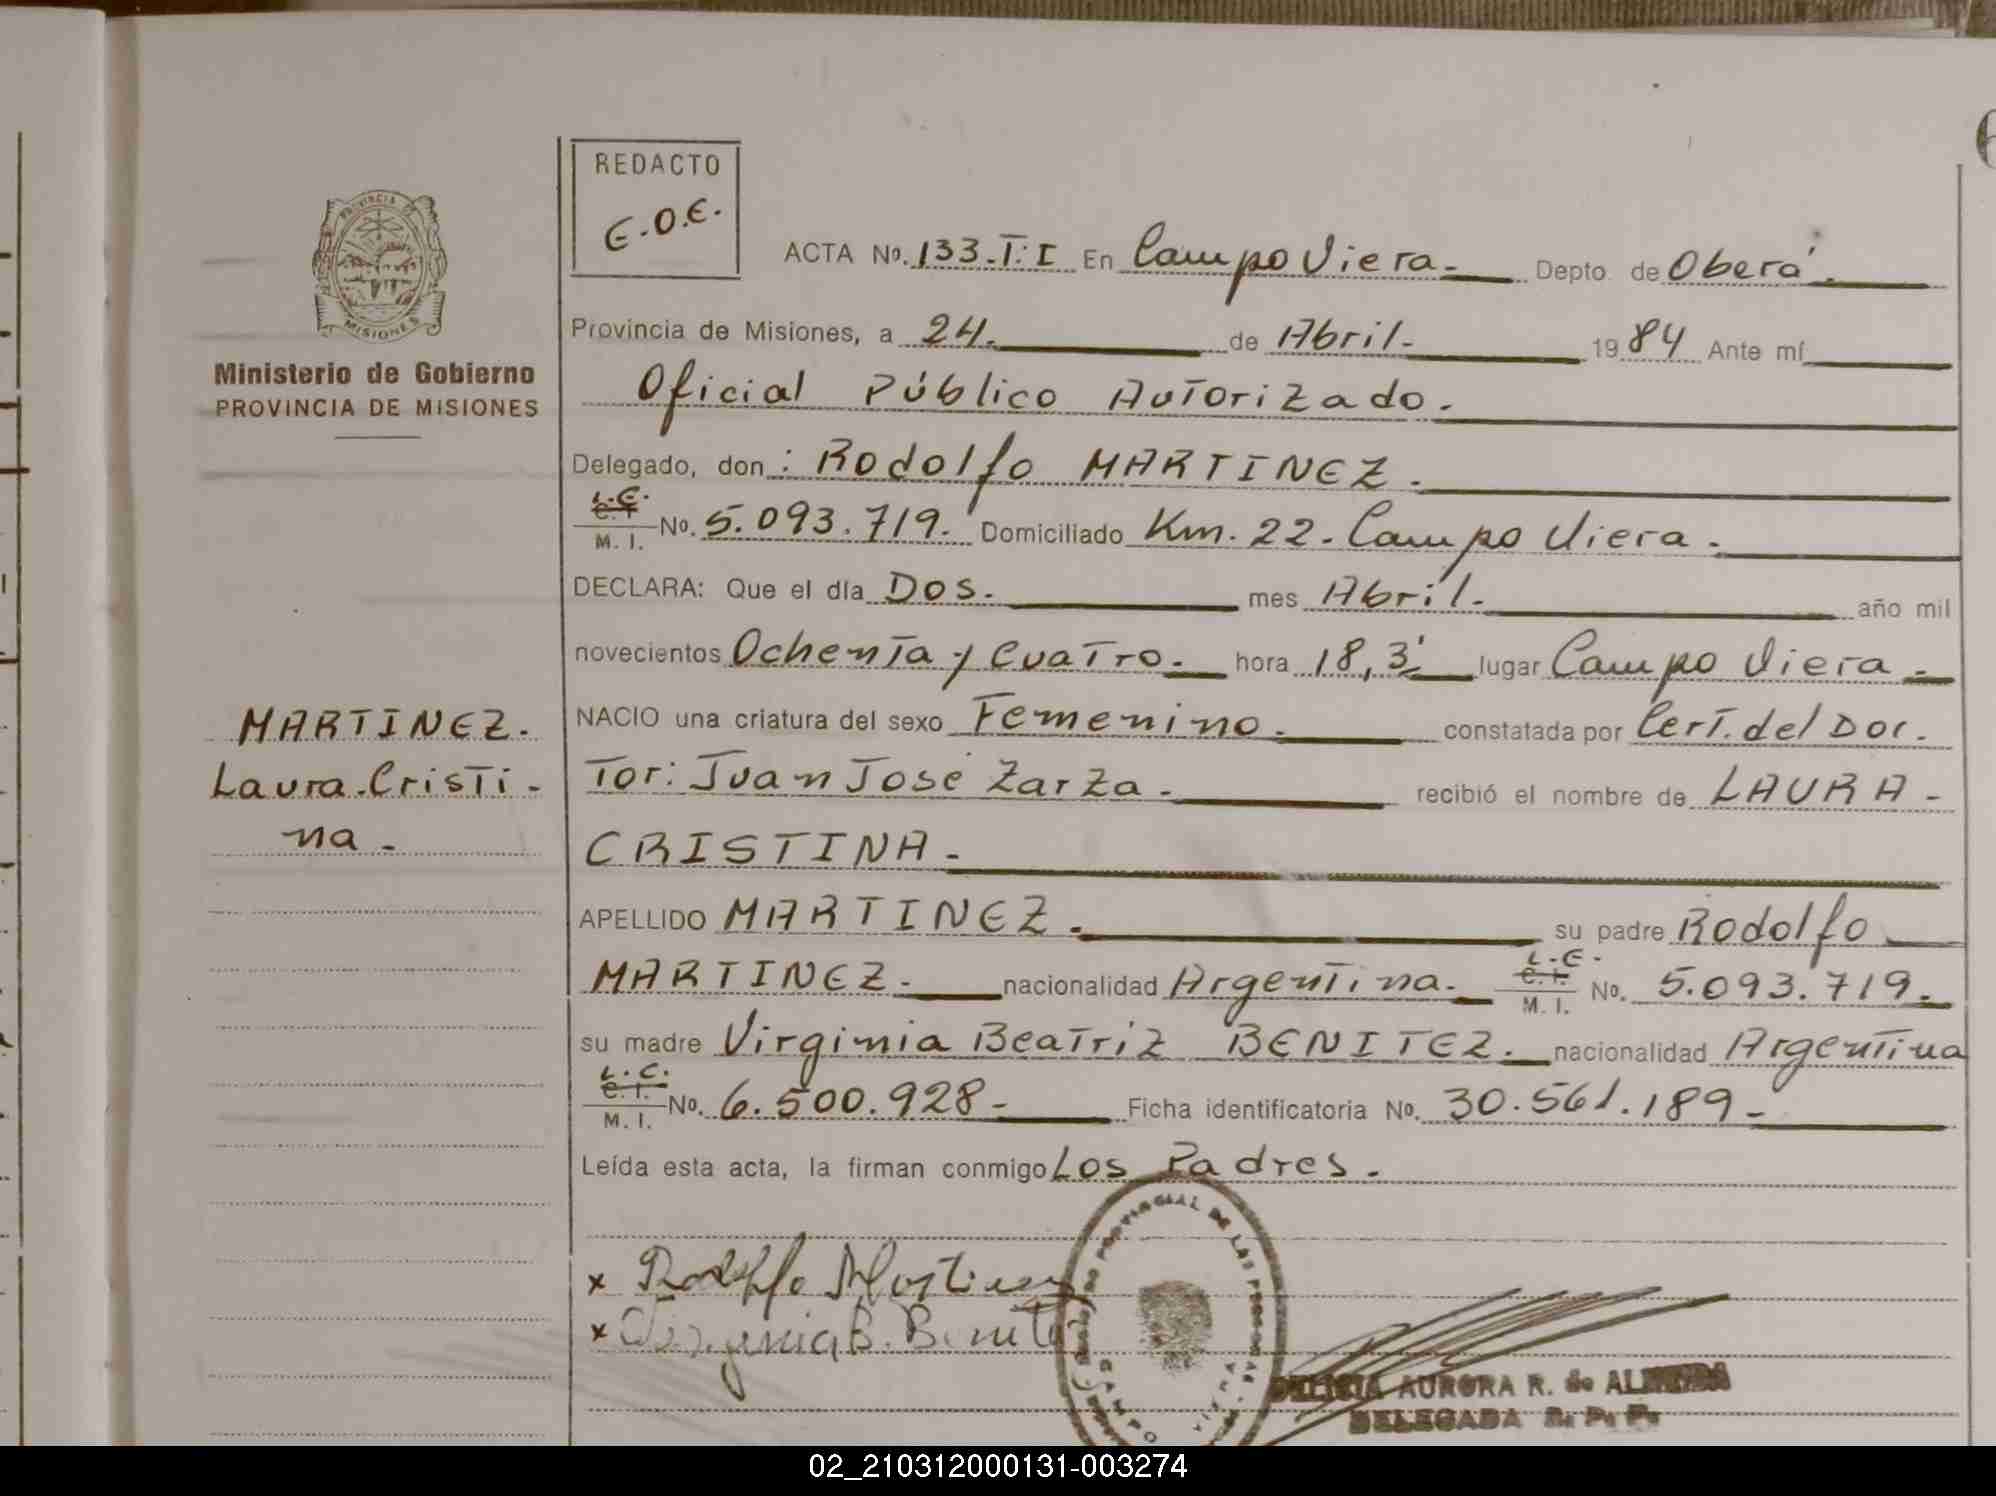 6
REDACTO
E.O.E.
PROVINCIA DE
MISIONES
Ministerio de Gobierno
PROVINCIA DE MISIONES
MARTINEZ.
Laura.Cristi-
na-
ACTA No. 133.T:I En Campo Viera.- Depto. de Oberá.
Provincia de Misiones, a 24. de Abril. 1984 Ante mí
Oficial Público Autorizado.
Delegado, don: Rodolfo MARTINEZ.
L.E.
C.I.
M.I. No. 5.093.719. Domiciliado Km. 22. Campo Viera.
DECLARA: Que el día Dos. mes Abril. año mil
novecientos Ochenta y Cuatro. hora 18,3' lugar Campo Viera.
NACIO una criatura del sexo Femenino. constatada por Cert. del Doc.
Tor: Juan José Zarza. recibió el nombre de LAURA-
CRISTINA-
APELLIDO MARTINEZ. su padre Rodolfo
MARTINEZ. nacionalidad Argentina. L.E. C.I. M.I. No. 5.093.719.
su madre Virginia Beatriz BENITEZ. nacionalidad Argentina
L.C.
C.I.
M.I. No. 6.500.928- Ficha identificatoria No. 30.561.189-
Leída esta acta, la firman conmigo Los Padres.
x Rodolfo Martinez
x Virginia B. Benitez
PROVINCIAL DE LAS PERSONAS
CAMPO
AURORA R. de ALMEIDA
DELEGADA R. P. P.
02_210312000131-003274